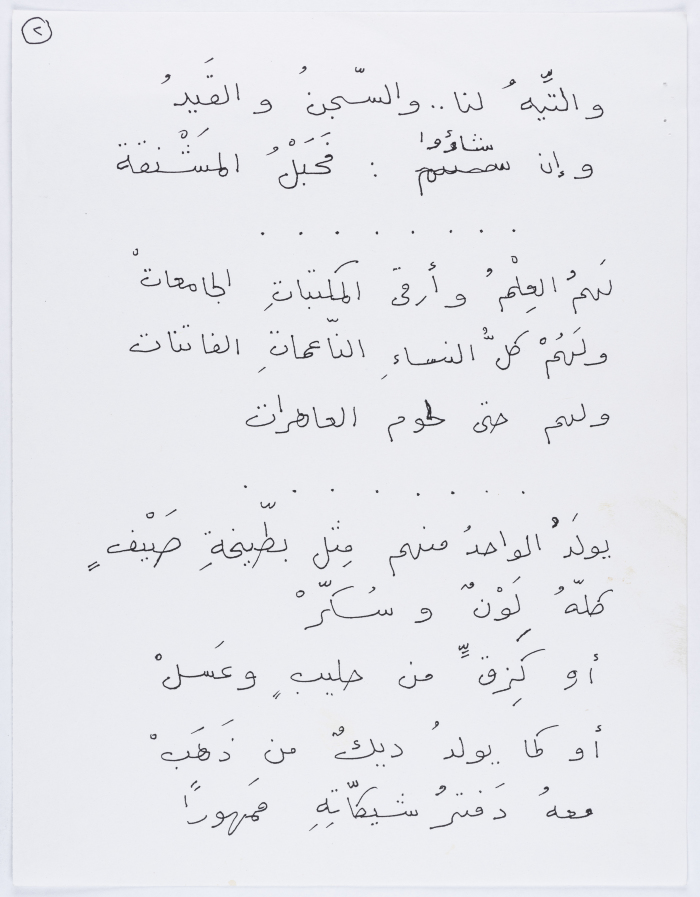 ٢
والتِّيهُ لنا.. والسّجنُ والقَيدُ
وإن شاؤوا : فَحَبْلُ المَشْنَقة
. . . . . . . .
لَهمُ العِلْمُ وأرقى المكتباتِ الجامعاتْ
ولَهُمْ كلُّ النساءِ النّاعماتِ الفاتنات
ولهم حتى لحوم العاهرات
. . . . . . . .
يولَدُ الواحدُ منهم مِثل بطّيخةِ صَيْفٍ
كلّهُ لَوْنٌ وسُكّرْ
أو كَزِقٍّ من حليبٍ وعَسَلْ
أو كما يولدُ ديكٌ من ذَهَبْ
معهُ دَفترُ شيكّاتِهِ مَمهورًا